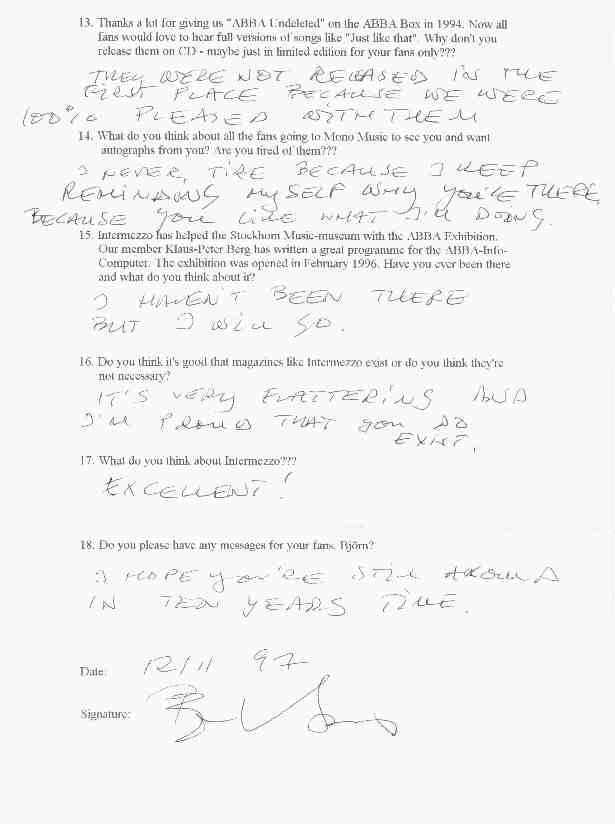 13. Thanks a lot for giving us "ABBA Undeleted" on the ABBA Box in 1994. Now all
fans would love to hear full versions of songs like "Just like that". Why don't you
release them on CD - maybe just in limited edition for your fans only???
THEY WERE NOT RELEASED IN THE
FIRST PLACE BECAUSE WE WERE
100% PLEASED WITH THEM
14. What do you think about all the fans going to Mono Music to see you and want
autographs from you? Are you tired of them???
I NEVER TIRE BECAUSE I KEEP
REMINDING MYSELF WHY YOU'RE THERE,
BECAUSE YOU LIKE WHAT I'M DOING.
15. Intermezzo has helped the Stockhom Music-museum with the ABBA Exhibition.
Our member Klaus-Peter Berg has written a great programme for the ABBA-Info-
Computer. The exhibition was opened in February 1996. Have you ever been there
and what do you think about it?
I HAVEN'T BEEN THERE
BUT I WILL GO.
16. Do you think it's good that magazines like Intermezzo exist or do you think they're
not necessary?
IT'S VERY FLATTERING AND
I'M PROUD THAT YOU DO
EXIST.
17. What do you think about Intermezzo???
EXCELLENT!
18. Do you please have any messages for your fans, Björn?
I HOPE YOU'RE STILL AROUND
IN TEN YEARS TIME.
Date: 12/11 97
Signature: